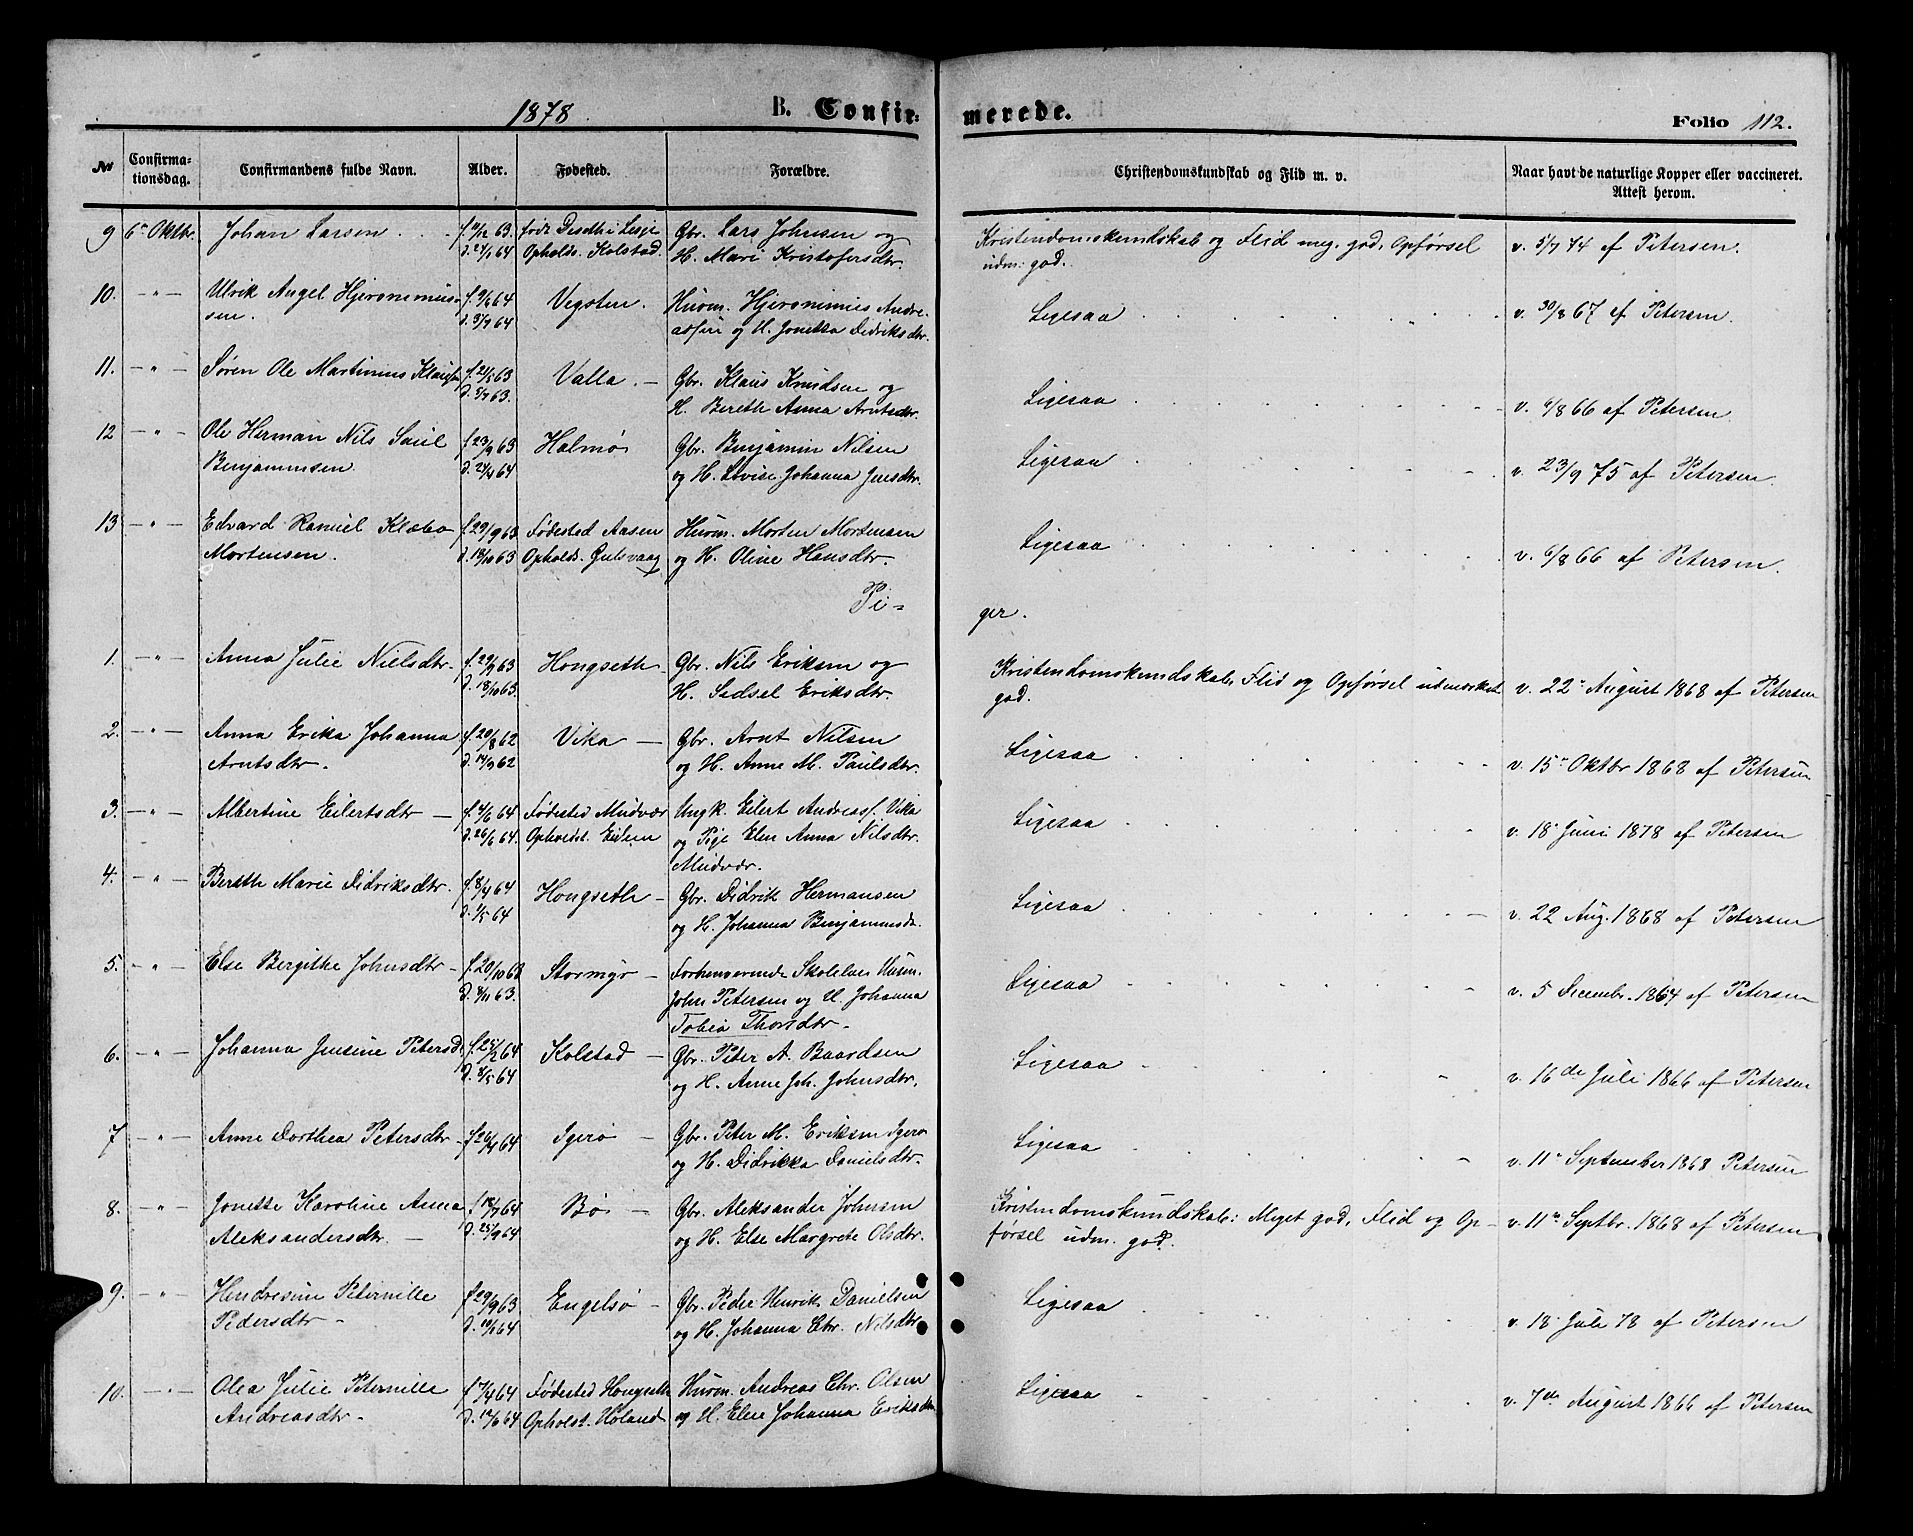 1878 B. Confir-
merede.
Folio 112.
№ Confirma-tionsdag. Confirmandens fulde Navn. Alder. Fødested. Forældre. Christendomskundskab og Flid m. v. Naar havt de naturlige Kopper eller vaccineret. Attest herom.
9 6te Oktbr. Johan Larsen f. 63 født i Lesje Gbr. Lars Johnsen og Kristendomskundskab og Flid meg. god, Opførsel v. 5/7 74 af Petersen.
d. 64 Opholds. Kolstad. H. Mari Kristofersdtr. udm: god.
10. -"- Ulrik Angel Hjeronimus- f. 9/6 64 Vegsten. Husm. Hjeronimus Andre- Ligesaa v. 30/8 67 af Petersen.
sen. d. 3/7 64 assen og H. Jonetta Didriksdtr.
11. -"- Søren Ole Martinus Klausen f. 21/5 63 Valla. - Gbr. Klaus Knudsen og Ligesaa v. 6/8 66 af Petersen
d. 5/7 63. H. Bereth Anna Arntsdtr.
12 -"- Ole Herman Nils Saul f. 23/9 63 Halmø Gbr. Benjamin Nilsen Ligesaa v. 23/9 75 af Petersen.
Benjaminsen. d. 24/4 64 og H. Lovise Johanna Jensdtr.
13 -"- Edvard Klæbo f. 29/9 63 Fødested Aasen Husm. Morten Mortensen Ligesaa v. 6/8 66 af Petersen.
Mortensen. d. 18/10 63 Opholds. Gulsvaag og H. Oline Hansdtr.
Pi-
ger.
1. -"- Anna Julie Nielsdtr. f. 29/9 63 Hongseth - Gbr. Nils Eriksen og Kristendomskundskab, Flid og Opførsel udmærket v. 22de August 1868 af Petersen
d. 18/10 63. H. Sedsel Eriksdtr. god.
2. -"- Anna Erika Johanna f. 20/8 62 Vika - Gbr. Arnt Nilsen Ligesaa v. 15de Oktbr 1868 af Petersen
Arntsdtr. d. 14/9 62 og H. Anne M. Paulsdtr.
3. -"- Albertine Eilertsdtr - f. 4/6 64 Fødested Mudvær Ungk. Eilert Andreass. Vika Ligesaa v. 18 Juni 1878 af Petersen
d. 26/6 64. Opholdst. Eidem og Pige Elen Anna Nilsdtr.
Mudvær.
4. -"- Bereth Marie Didriksdtr. f. 8/4 64 Hongseth - Gbr. Didrik Hermansen Ligesaa v. 22 Aug. 1868 af Petersen
d. 1/5 64 og H. Johanna Benjaminsdt.
5. -"- Else Bergithe Johnsdtr - f. 20/10 63 Stormyr - Forhenværende Skolelær Husm. Ligesaa v. 5 Decembr. 1864 af Petersen
d. 8/11 63. John Petersen og H. Johanna
Tobia Thorsdtr.
6. -"- Johanna Jensine Petersd. f. 64 Kolstad - Gbr. Peter A. Baardsen Ligesaa v. 16de Juli 1866 af Petersen
d. 8/5 64 og H. Anne Joh. Johnsdtr.
7 -"- Anne Dorthea Petersdtr - f. 26/4 64 Igerø - Gbr. Peter M. Eriksen Igerø Ligesaa v. 11te September 1868 Petersen
og H. Didrikka Danielsdtr.
8. -"- Jonette Karoline Anna f. 18/7 64 Bø - Gbr. Aleksander Johnsen Kristendomskundskab: Meget god, Flid og Op- v. 11te Septbr. 1868 af Petersen
Aleksandersdtr. - d. 25/9 64 og H. Else Margrete Olsdtr. førsel udm. god.
9. -"- Hendresine Peternille f. 29/9 63 Engelsø - Gbr. Peder Henrik Danielsen Ligesaa v. 18 Juli 78 af Petersen
Pedersdtr - d. 10/1 64 og H. Johanna Chr. Nilsdtr.
10. -"- Olea Julie Peternille f. 7/4 64 Fødested Hongseth Husm. Andreas Chr. Olsen Ligesaa v. 7de August 1866 af Petersen
Andreasdtr. d. 12/6 64 Opholst. Høland og H. Elen Johanna Eriksdtr.